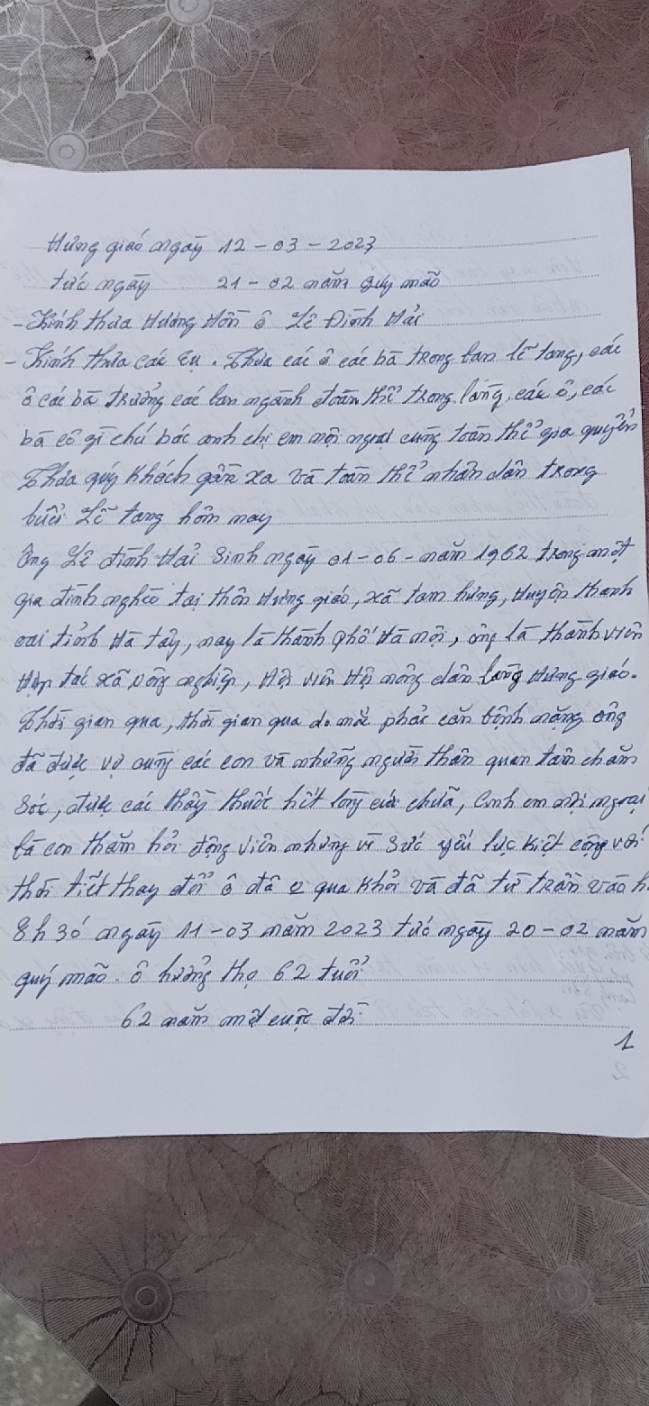 Hưng giáo ngày 12 - 03 - 2023
tức ngày 21 - 02 năm quý mão
- Kính thưa Hương Hồn ô Lê Đình Hải
- Kính thưa các cụ. Thưa các ô các bà trong ban lễ tang, các
ô các bà trưởng các ban ngành đoàn thể trong làng, các ô, các
bà cô gì chú bác anh chị em nội ngoại cùng toàn thể gia quyến
Thưa quý khách gần xa và toàn thể nhân dân trong
buổi Lễ tang hôm nay
Ông Lê đình Hải Sinh ngày 01 - 06 - năm 1962 trong một
gia đình nghèo tại thôn Hưng giáo, xã tam hưng, Huyện thanh
oai tỉnh Hà tây, nay là thành phố Hà nội, ông là thành viên
Hợp tác xã nông nghiệp, Hội viên Hội nông dân làng Hưng giáo.
Thời gian qua, thời gian qua do mắc phải căn bệnh nặng ông
đã được vợ cùng các con và những người thân quan tâm chăm
sóc, được các thầy thuốc hết lòng cứu chữa, anh em nội ngoại
bà con thăm hỏi động viên nhưng vì sức yếu lực kiệt cộng với
thời tiết thay đổi ô đã qua khỏi và đã từ trần vào h
8h30' ngày 11 - 03 năm 2023 tức ngày 20 - 02 năm
quý mão. ô hưởng thọ 62 tuổi
62 năm một cuộc đời
1